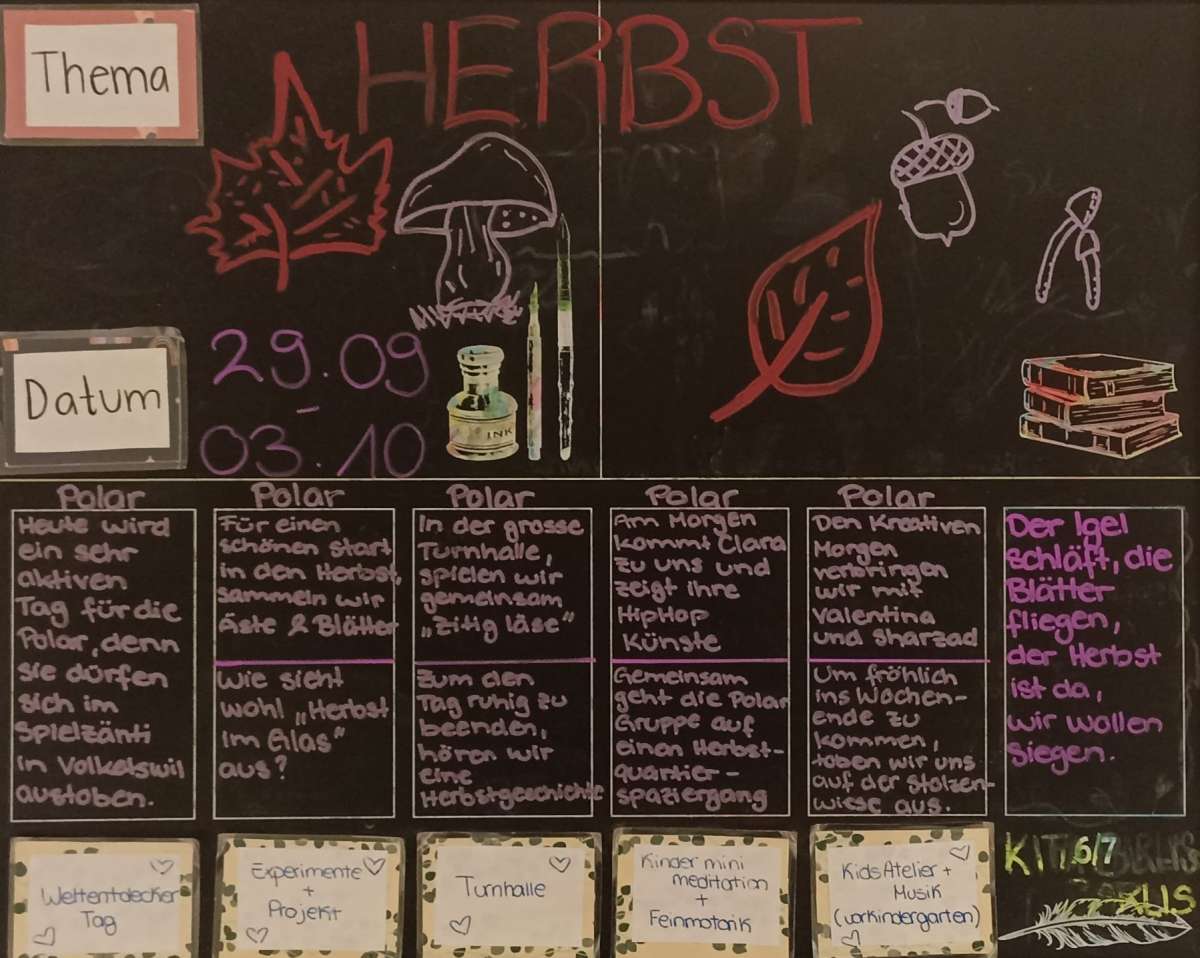 Thema
HERBST
INK
Datum
29.09
-
03.10
Polar
Heute wird
ein sehr
aktiven
Tag für die
Polar, denn
sie dürfen
sich im
Spielzänti
in Volkelswil
austoben.
Polar
Für einen
schönen start
in den Herbst,
sammeln wir
Äste & Blätter
Wie sieht
wohl „Herbst
im Glas"
aus?
Polar
In der grosse
Turnhalle,
spielen wir
gemeinsam
„Zitig läse"
Zum den
Tag ruhig zu
beenden,
hören wir
eine
Herbstgeschichte
Polar
Am Morgen
kommt Clara
zu uns und
zeigt ihre
HipHop
Künste
Gemeinsam
geht die Polar
Gruppe auf
einen Herbst-
quartier-
spaziergang
Polar
Den Kreativen
Morgen
verbringen
wir mit
Valentina
und Sharzad
Um fröhlich
ins Wochen-
ende zu
kommen,
toben wir uns
auf der Stolzen-
wiese aus.
Der Igel
schläft, die
Blätter
fliegen,
der Herbst
ist da,
wir wollen
siegen.
Weltentdecker
Tag
Experimente
+
Projekt
Turnhalle
Kinder mini
meditation
+
Feinmotorik
KidsAtelier +
Musik
(vorkindergarten)
6/7